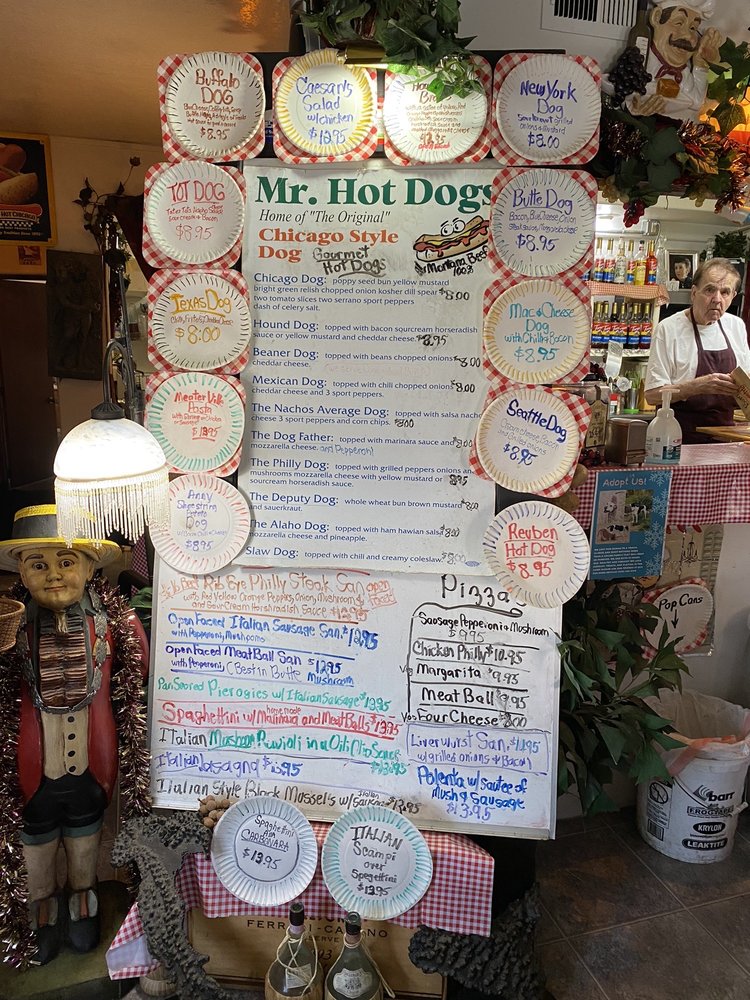 Buffalo
DOG
$8.95
Caesar's
Salad
w/chicken
$12.95
New York
Dog
Sauerkraut Grilled
onions & mustard
$8.00
TOT DOG
Tater Tots Nacho
Sour cream &
$8.95
Butte Dog
Bacon, Bleu Cheese Onion
$8.95
Texas Dog
$8.00
Mac & Cheese
Dog
with Chili & Bacon
$8.95
Pasta
Seattle Dog
Cream cheese, Bacon
and Grilled onions
$8.95
Dog
$8.95
Reuben
Hot Dog
$8.95
Mr. Hot Dogs
Home of "The Original"
Chicago Style
Dog
Gourmet
Hot Dogs
Beef
100%
Chicago Dog: poppy seed bun yellow mustard
bright green relish chopped onion kosher dill spear
two tomato slices two serrano sport peppers $8.00
dash of celery salt.
Hound Dog: topped with bacon squrcream horseradish
sauce or yellow mustard and cheddar cheese. $8.95
Beaner Dog: topped with beans chopped onions 8.00
cheddar cheese.
Mexican Dog: topped with chili chopped onions $8.00
cheddar cheese and 3 sport peppers.
The Nachos Average Dog: topped with salsa nacho
cheese 3 sport peppers and corn chips. $8.00
The Dog Father: topped with marinara sauce and $8.00
mozzarella cheese. and Pepperoni
The Philly Dog: topped with grilled peppers onions and
mushrooms mozzarella cheese with yellow mustard or
sourcream horseradish sauce. 8.95
The Deputy Dog: whole wheat bun brown mustard $8.00
and sauerkraut.
The Alaho Dog: topped with ham hawian salsa $8.00
mozzarella cheese and pineapple.
Slaw Dog: topped with chili and creamy coleslaw. $8.00
Rib Eye Philly Steak San open Faced
with Red Yellow Orange Peppers, Onion, Mushroom &
and Sour Cream Horshradish Sauce
Open Faced Italian Sausage San $12.95
with Pepperoni, Mushrooms
open Faced Meat Ball San $12.95
with Pepperoni (Best in Butte Mushroom
Pan Seared Pierogies w/ Italian Sausage $13.95
Spaghettini w/ homemade Marinara and Meat Balls $13.95
Italian Mushroom Ravioli in a Oil Sauce
$13.95
Italian lasagna $13.95
Italian Style Black Mossels w/ Italian Sausage $13.95
Pizzas
Sausage Pepperoni & Mushroom
$9.95
Chicken Philly $10.95
Margarita $9.95
Meat Ball $9.95
Four Cheese
Liverwurst San, $12.95
w/ grilled onions & Bacon
Polenta w/ sautee of
Mush & Sausage
$13.95
Spaghettini
ala
CARBONARA
$13.95
ITALIAN
Scampi
over
Spegettini
$13.95
Adopt US!
Pop Cans
barr
FROGTAPE
KRYLON
LEAKTITE